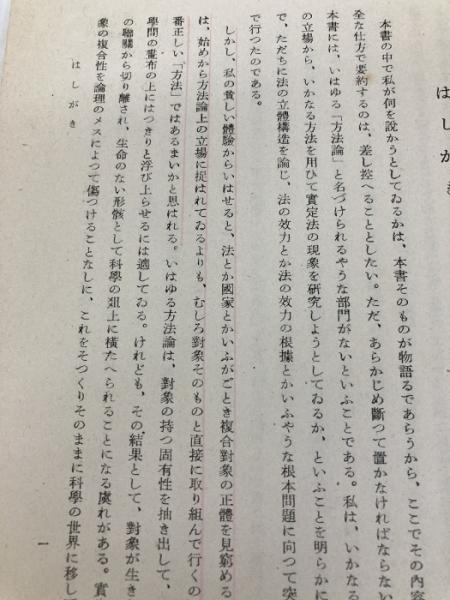 はしがき
本書の中で私が何を說かうとしてゐるかは、本書そのものが物語るであらうから、ここでその內容
全な仕方で要約するのは、差し控へることとしたい。ただ、あらかじめ斷つて置かなければならない
本書には、いはゆる「方法論」と名づけられるやうな部門がないといふことである。私は、いかなる
の立場から、いかなる方法を用ひて實定法の現象を硏究しようとしてゐるか、といふことを明らかに
で、ただちに法の立體構造を論じ、法の效力とか法の效力の根據とかいふやうな根本問題に向つて突
で行つたのである。
しかし、私の貧しい體驗からいはせると、法とか國家とかいふがごとき複合對象の正體を見窮める
は、始めから方法論上の立場に捉はれてゐるよりも、むしろ對象そのものと直接に取り組んで行くの
番正しい「方法」ではあるまいかと思はれる。いはゆる方法論は、對象の持つ固有性を抽き出して、
學問の畫布の上にはつきりと浮び上らせるには適してゐる。けれども、その結果として、對象が生き
の聯關から切り離され、生命のない形骸として科學の爼上に橫たへられることになる虞れがある。實
象の複合性を論理のメスによつて傷つけることなしに、これをそつくりそのままに科學の世界に移し
はしがき
一